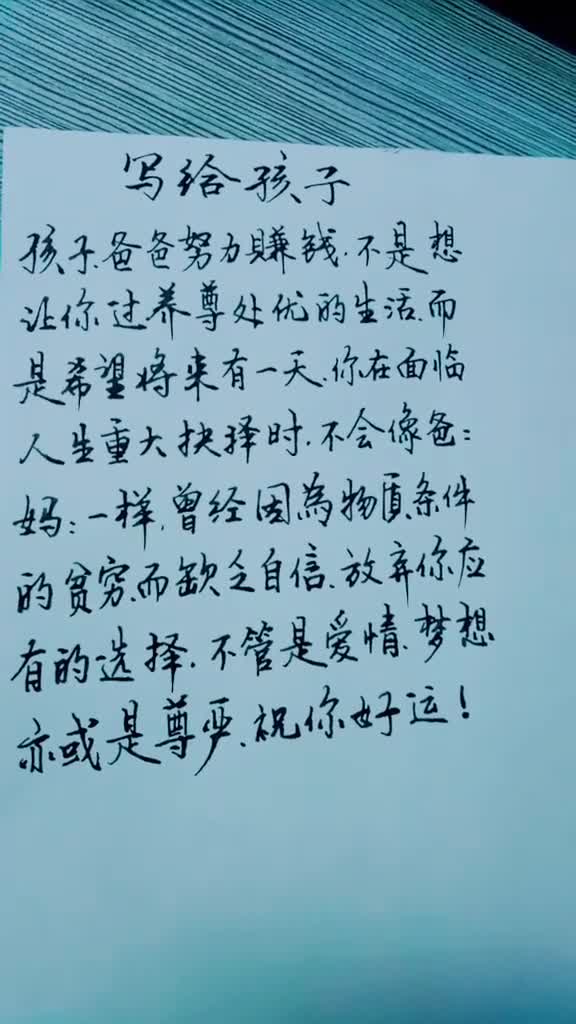 写给孩子
孩子、爸爸努力賺钱、不是想
让你过养尊处优的生活、而
是希望将来有一天、你在面临
人生重大抉择时、不会像爸:
妈:一样、曾经因為物质条件
的贫穷、而缺乏自信、放弃你应
有的选择、不管是爱情、梦想
亦或是尊严、祝你好运!